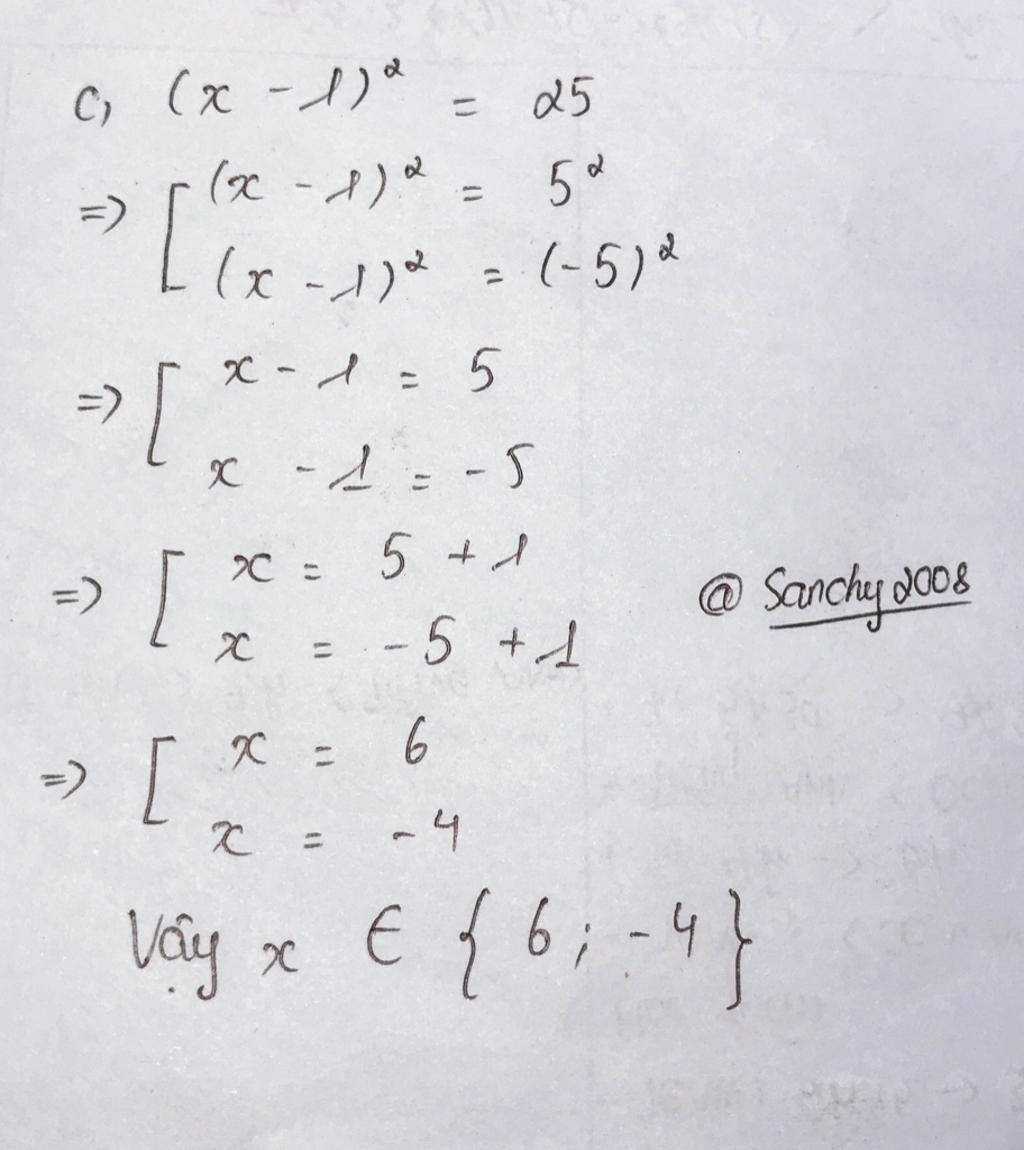 c, (x - 1)² = 25
=> [ (x - 1)² = 5²
(x - 1)² = (-5)²
=> [ x - 1 = 5
x - 1 = -5
=> [ x = 5 + 1
x = -5 + 1
@ Sanchy2008
=> [ x = 6
x = -4
Vậy x ∈ { 6 ; -4 }